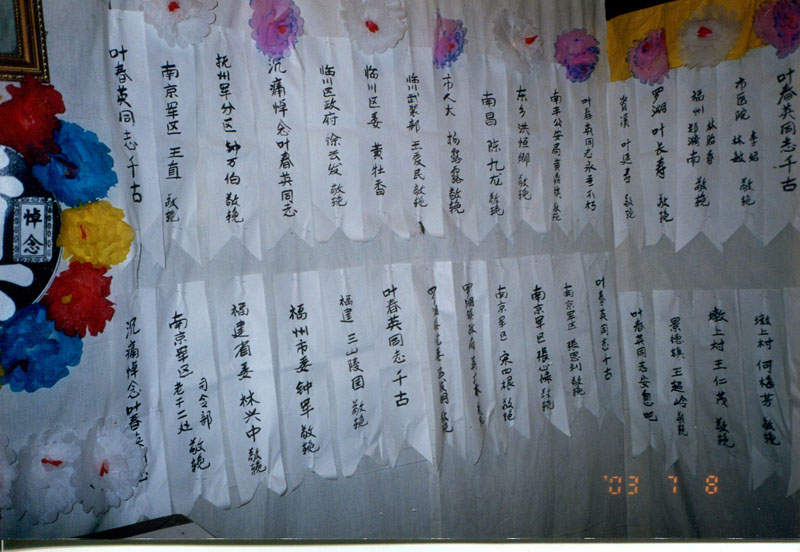 叶春英同志千古
南京军区 王直 敬挽
抚州军分区 钟万伯 敬挽
沉痛悼念叶春英同志
临川区政府 徐云发 敬挽
临川区委 黄牡香 敬挽
临川武装部 王爱民 敬挽
市人大 杨 敬挽
南昌 陈九龙 敬挽
东乡 洪恒 敬挽
南平公安局 敬挽
叶春英同志永垂不朽
资溪 叶廷 敬挽
罗湖 叶长寿 敬挽
福州 南 敬挽
市医院 林敏 李 敬挽
叶春英同志千古
悼念
沉痛悼念叶春英
南京军区老干二处 司令部 敬挽
福建省委 林兴中 敬挽
福州市委 钟军 敬挽
福建 三山陵园 敬挽
叶春英同志千古
南京军区 宋四根 敬挽
南京军区 张心 敬挽
南京军区 敬挽
叶春英同志千古
叶春英同志安息吧
景德镇 王超岭 敬挽
墩上村 王仁茂 敬挽
墩上村 何梅芳 敬挽
'03 7 8